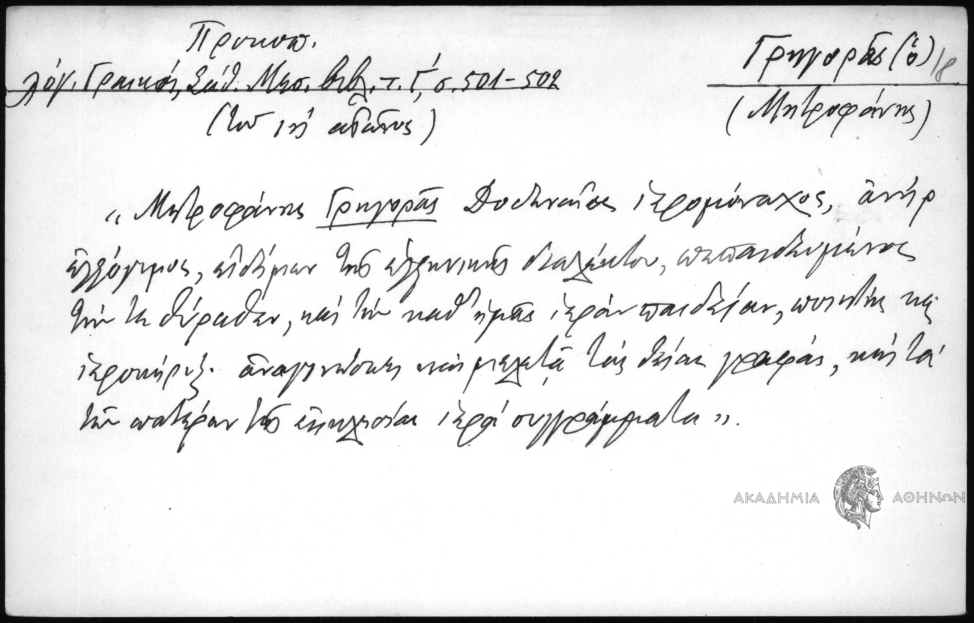 Προκοπ.
λόγ. Γραικοί, Σάθ. Μεσ. Βιβλ. τ. Γ΄, σ. 501-502
(τοῦ ιη΄ αἰῶνος)
Γρηγορᾶς (ὁ)
(Μητροφάνης)
„ Μητροφάνης Γρηγορᾶς Δωδωναῖος ἱερομόναχος, ἀνὴρ
ἐλλόγιμος, εἰδήμων τῆς ἑλληνικῆς διαλέκτου, πεπαιδευμένος
τήν τε θύραθεν, καὶ τὴν καθ' ἡμᾶς ἱερὰν παιδείαν, ποιητὴς καὶ
ἱεροκήρυξ· ἀναγινώσκει καὶ μελετᾷ τὰς θείας γραφάς, καὶ τὰ
τῶν πατέρων τῆς ἐκκλησίας ἱερὰ συγγράμματα ”.
ΑΚΑΔΗΜΙΑ ΑΘΗΝΩΝ